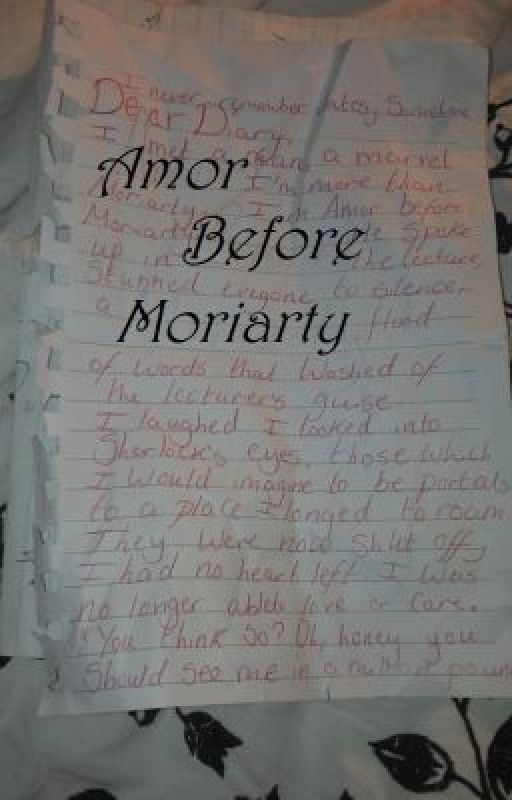 I never remember dates, Sometime
Dear Diary,
I met a man, a marvel
Amor
I'm more than
Moriarty I'm Amor before
Moriarty He Spoke
Before
up in the lecture,
Stunned everyone to silence,
a flood
Moriarty
of words that washed of
the lecturer's guise
I laughed I looked into
Sherlock's eyes, those which
I would imagine to be portals
to a place I longed to roam
They were now Shut off,
I had no heart left I was
no longer able love or care.
"You think so? Oh, honey you
Should see me in a